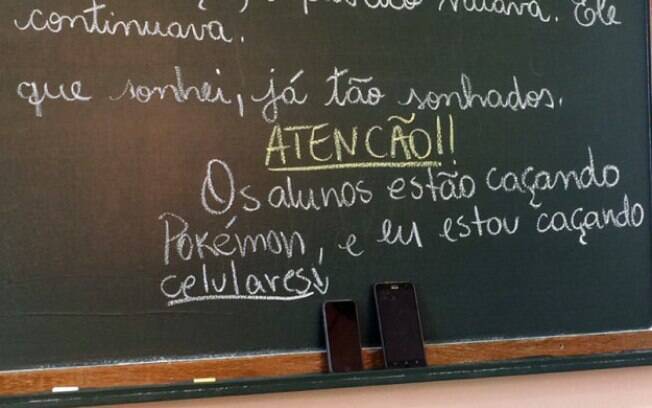 público vaiava. Ele
continuava.
que sonhei, já tão sonhados.
ATENCÃO!!
Os alunos estão caçando
Pokémon, e eu estou caçando
celulares↓